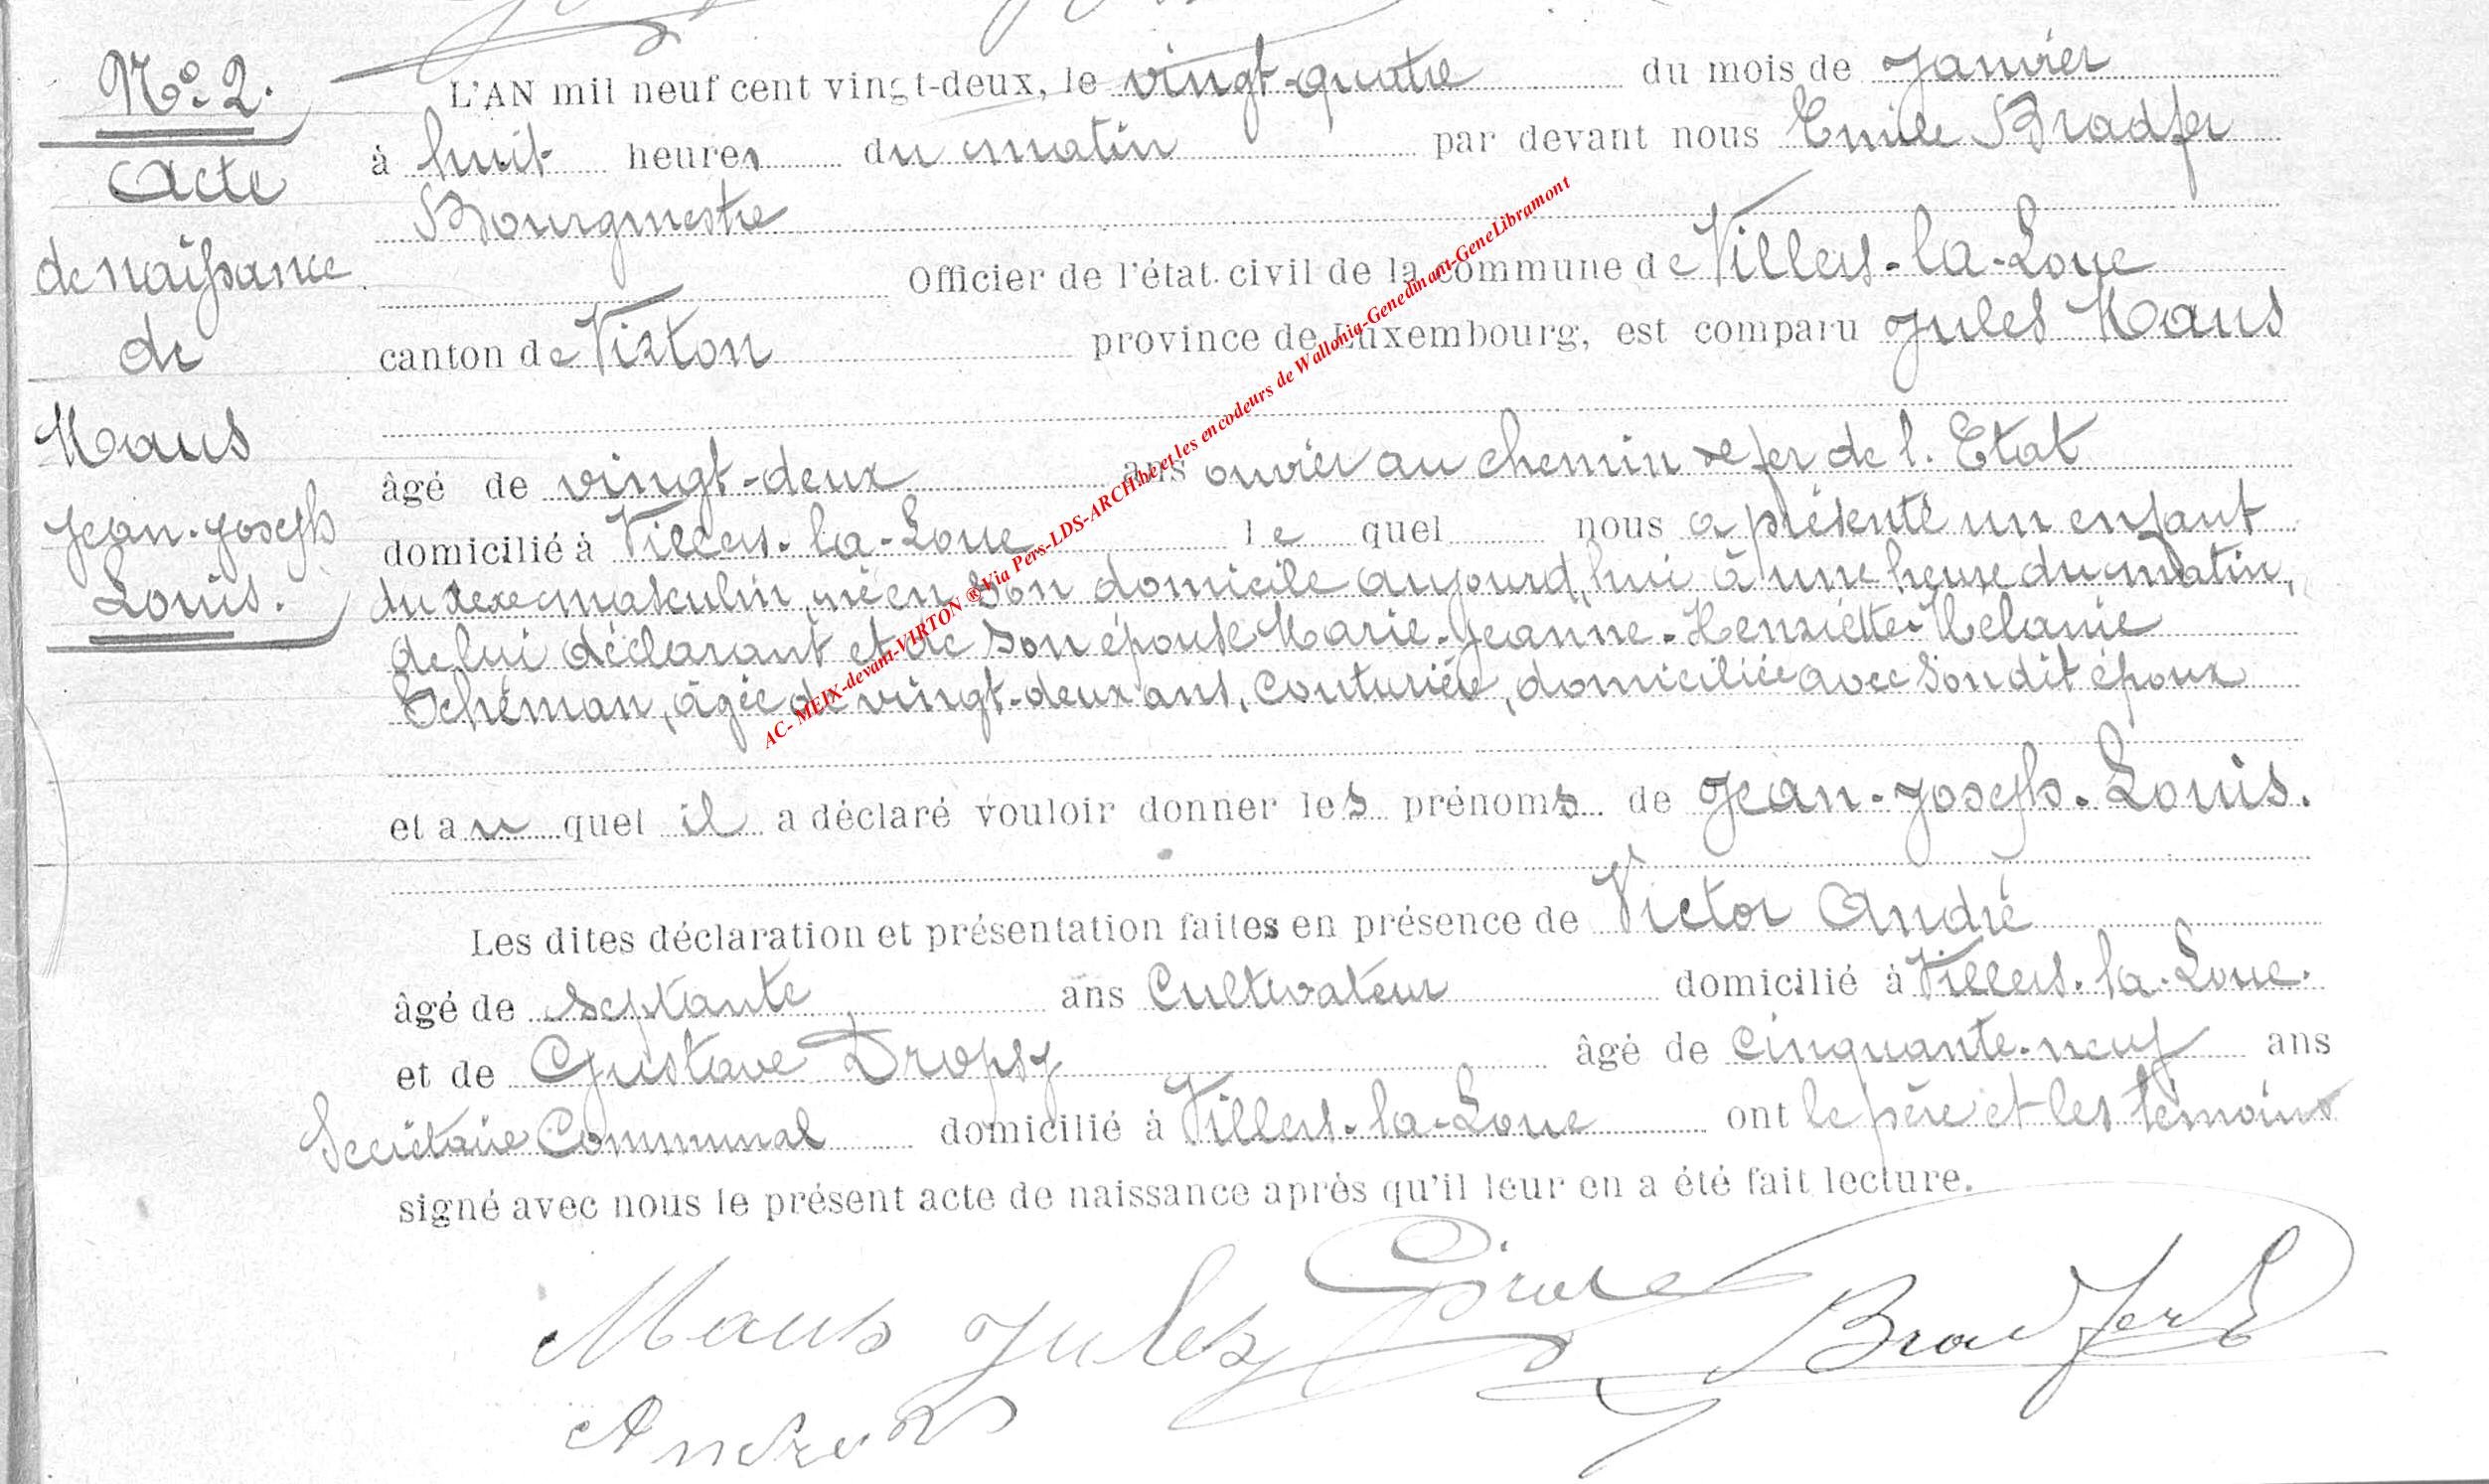 Nº 2.
Acte
de naissance
de
Maus
Jean-Joseph
Louis.
L'AN mil neuf cent vingt-deux, le vingt-quatre du mois de Janvier
à huit heures du matin par devant nous Emile Bradfer
Bourgmestre
Officier de l'état civil de la commune de Villers-la-Loue
canton de Virton province de Luxembourg, est comparu Jules Maus
âgé de vingt-deux ans ouvrier au chemin de fer de l'Etat
domicilié à Villers-la-Loue le quel nous a présenté un enfant
du sexe masculin, né en son domicile aujourd'hui à une heure du matin,
de lui déclarant et de son épouse Marie-Jeanne-Henriette-Melanie
Schéman, âgée de vingt-deux ans, couturière, domiciliée avec son dit époux
et au quel il a déclaré vouloir donner les prénoms de Jean-Joseph-Louis.
Les dites déclaration et présentation faites en présence de Victor André
âgé de septante ans Cultivateur domicilié à Villers-la-Loue.
et de Gustave Dropsy âgé de cinquante-neuf ans
Secrétaire Communal domicilié à Villers-la-Loue ont le père et les témoins
signé avec nous le présent acte de naissance après qu'il leur en a été fait lecture.
Maus Jules
Bradfer E
André V
AC- MEIX-devant-VIRTON ® Via Pers-LDS-ARCH.be et les encodeurs de Wallonia-Genedinant-GeneLibramont